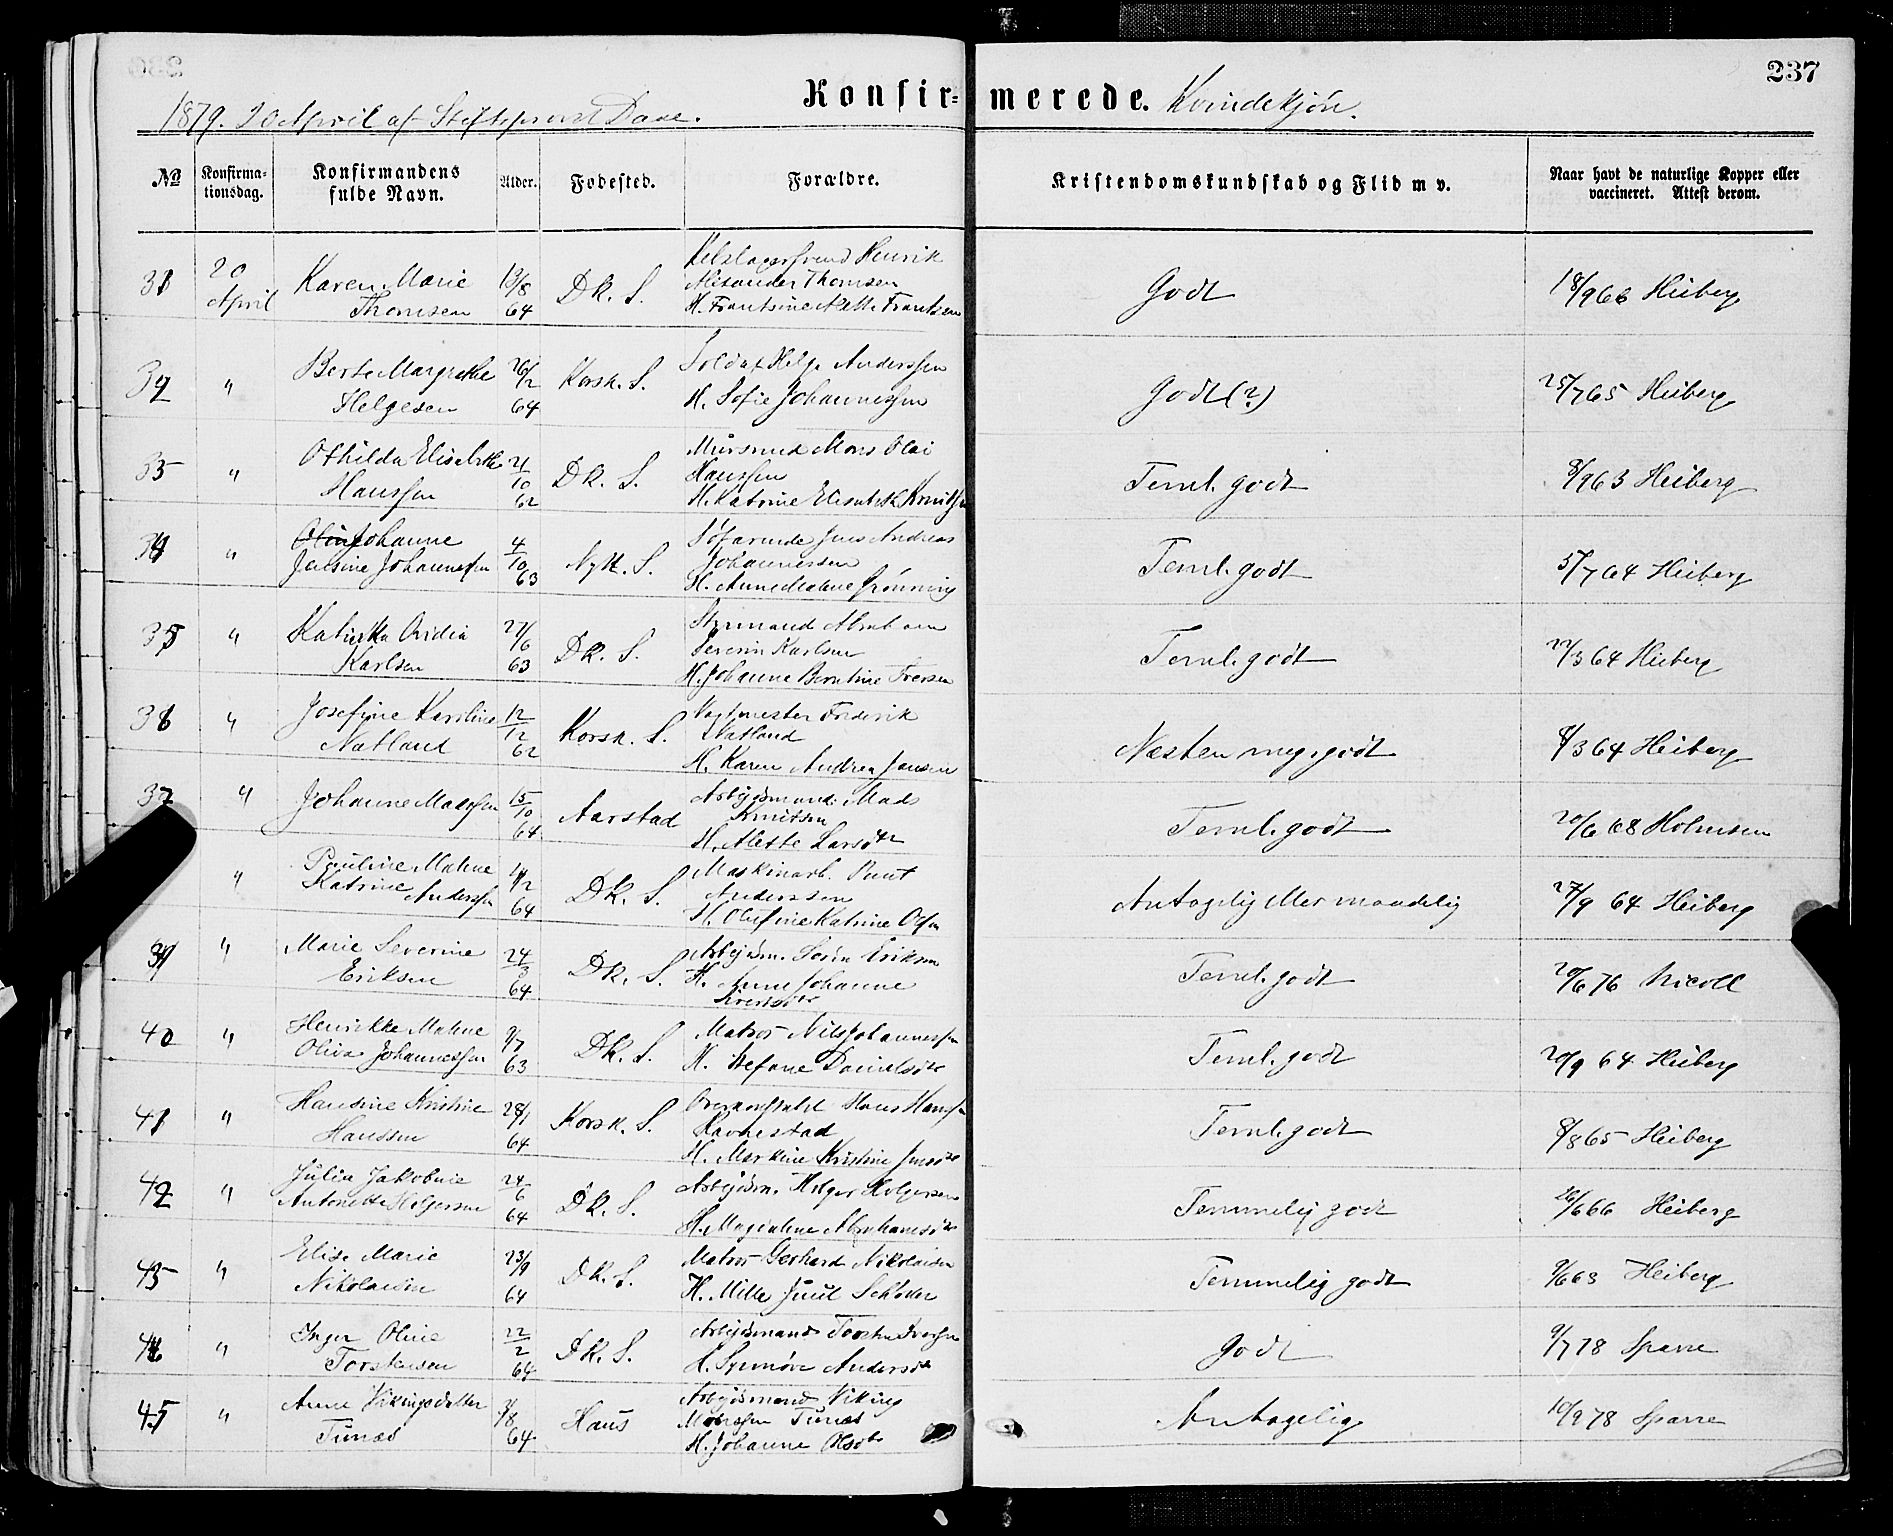 237
Konfir- merede. Kvindekjön.
1879. 20 April af Stiftsprovst Daae.
No
Konfirma-
tionsdag.
Konfirmandens
fulde Navn.
Alder.
Fødested.
Forældre.
Kristendomskundskab og Flid m v.
Naar havt de naturlige Kopper eller
vaccineret. Attest derom.
31 20 April Karen Marie Thomsen 13/8 64 Dk. S. Henrik Alexander Thomsen
Godt 18/9 66 Heiberg
32 " Berte Margrethe Helgesen 26/2 64 Korsk. S. Soldat Helge Anderssen H. Sofie Johannessen
Godt (?) 25/7 65 Heiberg
33 " Othilda Elisabeth Hanssen 21/10 62 Dk. S. Mursvend Mons Olai Hanssen H. Katrine Elisabeth Knutsen
Teml. godt 8/9 63 Heiberg
34 " Johanne Jensine Johannessen 4/10 63 Nyk. S. Søfarende Jens Andreas Johannessen H. Anne Malene Grønning
Teml. godt 5/7 64 Heiberg
35 " Katinka Ovidia Karlsen 27/6 63 Dk. S. Styrmand Abraham Severin Karlsen H. Johanne Berntine Iversen
Teml. godt 22/3 64 Heiberg
36 " Josefine Karoline Natland 12/12 62 Korsk. S. Vagtmester Frederik Natland H. Karen Andrea Jensen
Næsten meg. godt 8/3 64 Heiberg
37 " Johanne Madssen 15/10 64 Aarstad Arbejdsmand Mads Knutsen H. Mette Larsdtr
Teml. godt 20/6 68 Holmsen
" Pauline Malene Katrine Anderssen 64 Dk. S. Maskinarb. Knut Anderssen H. Olufine Katrine Olsen
Antagelig eller maadelig 27/9 64 Heiberg
39 " Marie Severine Eriksen 24/3 64 Dk. S. Arbejdsm. Søren Eriksen H. Anne Johanne Sivertsdtr
Teml. godt 20/6 76 Nicoll
40 " Henrikke Malene Oliva Johannessen 9/7 63 Dk. S. Matros Nils Johannessen H. Stefane Danielsdtr
Teml. godt 20/9 64 Heiberg
41 " Hansine Kristine Hanssen 28/1 64 Korsk. S. Hans Hanssen Ravnestad H. Markine Kristine Jensdtr
Teml. godt 8/8 65 Heiberg
42 " Julia Jakobine Antonette Holgersen 24/6 64 Dk. S. Arbejdsm. Holger Holgersen H. Magdalene Abrahamsdtr
Temmelig godt 26/6 66 Heiberg
43 " Elise Marie Nikolaisen 23/9 64 Dk. S. Matros Gerhard Nikolaisen H. Mille Juul Schøder
Temmelig godt 9/6 63 Heiberg
44 " Inger Oline Torstensen 22/2 64 Dk. S. Arbejdsmand Torsten Iversen H. Synnøve Andersdtr
Godt 9/7 78 Sparre
45 " Anne Vikingsdatter Tunæs 3/8 64 Haus Arbejdsmand Viking Monssen Tunæs H. Johanne Olsdtr
Antagelig 10/9 78 Sparre